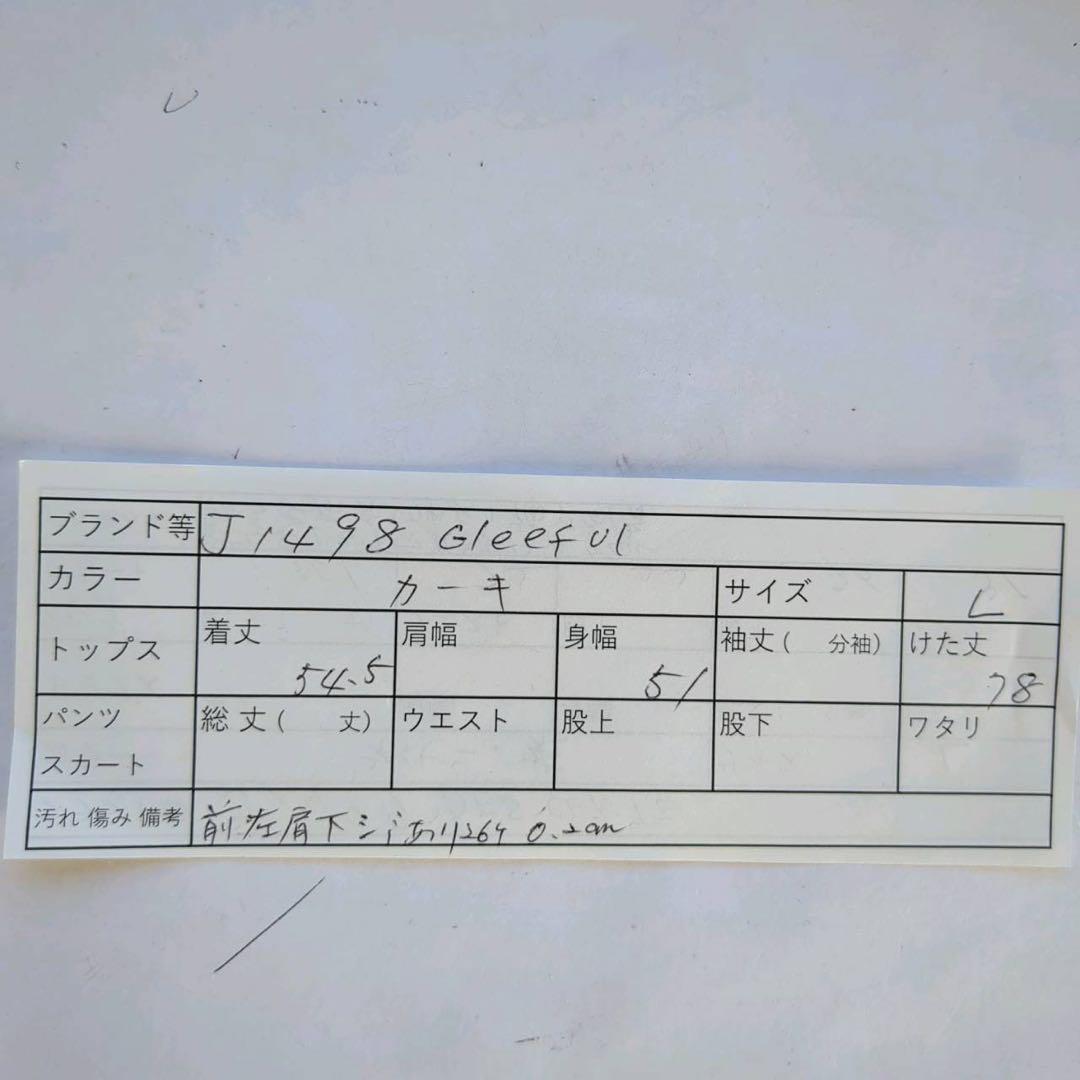 ブランド等 J1498 Gleeful
カラー カーキ サイズ L
トップス 着丈 54.5 肩幅 身幅 51 袖丈( 分袖) けた丈 78
パンツ スカート 総丈( 丈) ウエスト 股上 股下 ワタリ
汚れ 傷み 備考 前左肩下シミあり 0.2cm